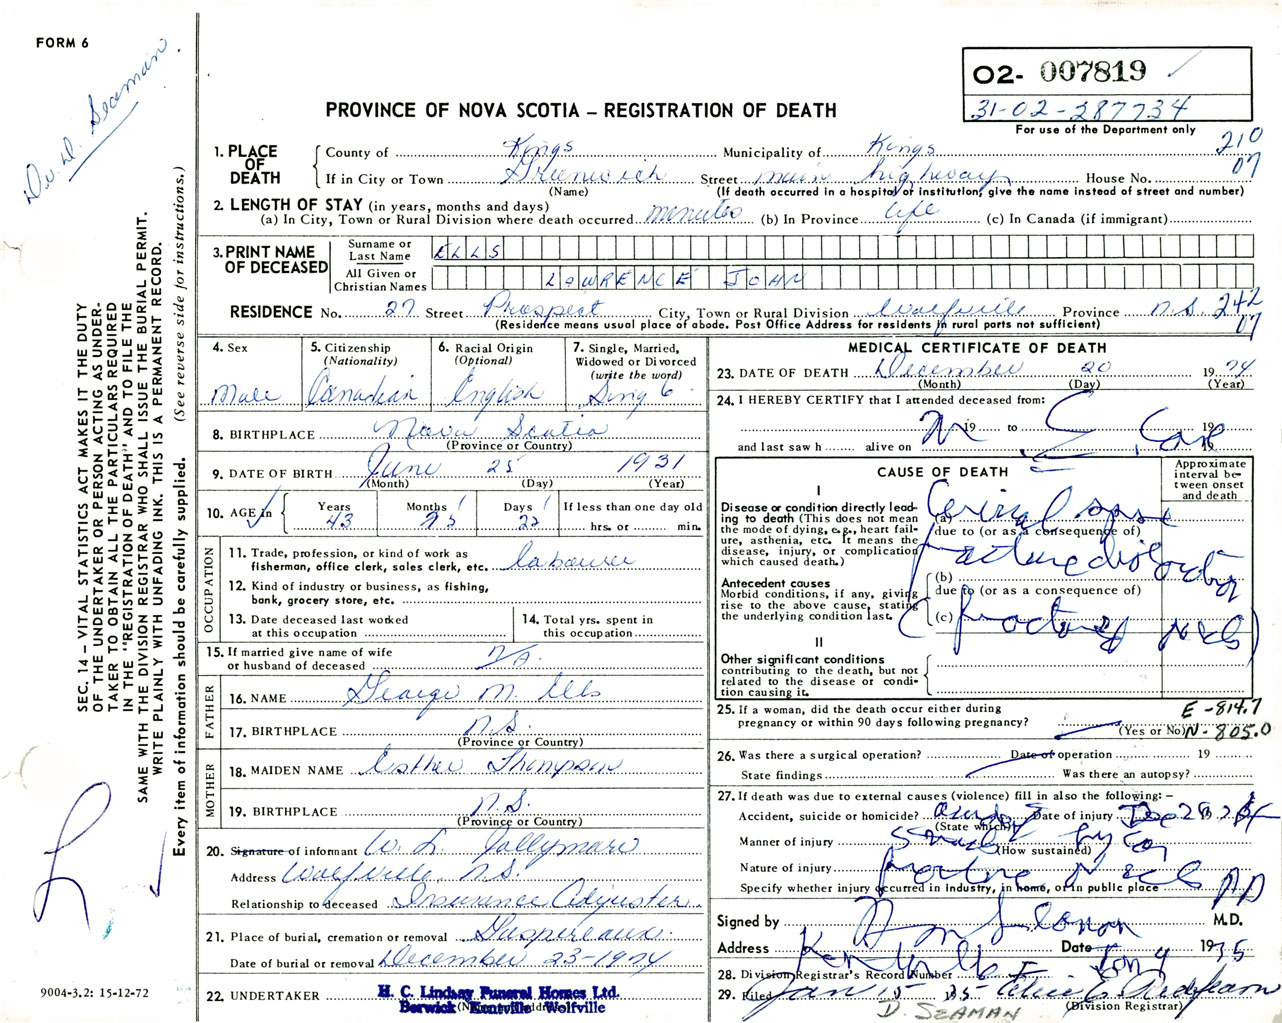 FORM 6
Dr. D. Seaman
O2- 007819
31-02-287734
For use of the Department only
PROVINCE OF NOVA SCOTIA – REGISTRATION OF DEATH
210
07
1. PLACE OF DEATH
County of Kings Municipality of Kings
If in City or Town Greenwich Street main highway House No.
(Name) (If death occurred in a hospital or institution, give the name instead of street and number)
2. LENGTH OF STAY (in years, months and days)
(a) In City, Town or Rural Division where death occurred minutes (b) In Province life (c) In Canada (if immigrant)
3. PRINT NAME OF DECEASED
Surname or Last Name ELLS
All Given or Christian Names LAWRENCE JOHN
RESIDENCE No. 27 Street Prospect City, Town or Rural Division Wolfville Province N.S. 242
07
(Residence means usual place of abode. Post Office Address for residents in rural parts not sufficient)
4. Sex Male
5. Citizenship (Nationality) Canadian
6. Racial Origin (Optional) English
7. Single, Married, Widowed or Divorced (write the word) Single
8. BIRTHPLACE Nova Scotia
(Province or Country)
9. DATE OF BIRTH June 25 1931
(Month) (Day) (Year)
10. AGE in Years 43 Months Days 22 If less than one day old hrs. or min.
OCCUPATION
11. Trade, profession, or kind of work as fisherman, office clerk, sales clerk, etc. labourer
12. Kind of industry or business, as fishing, bank, grocery store, etc.
13. Date deceased last worked at this occupation
14. Total yrs. spent in this occupation
15. If married give name of wife or husband of deceased N/A.
FATHER
16. NAME George M. Ells
17. BIRTHPLACE N.S.
(Province or Country)
MOTHER
18. MAIDEN NAME Esther Thompson
19. BIRTHPLACE N.S.
(Province or Country)
20. Signature of informant W. L. Jollymore
Address Wolfville N.S.
Relationship to deceased Insurance Adjuster
21. Place of burial, cremation or removal Gaspereaux
Date of burial or removal December 23-1974
22. UNDERTAKER H. C. Lindsay Funeral Homes Ltd.
Berwick Kentville Wolfville
MEDICAL CERTIFICATE OF DEATH
23. DATE OF DEATH December 20 1974
(Month) (Day) (Year)
24. I HEREBY CERTIFY that I attended deceased from:
19 to 19
and last saw h alive on 19
CAUSE OF DEATH
Approximate interval between onset and death
I
Disease or condition directly leading to death (This does not mean the mode of dying, e.g., heart failure, asthenia, etc. It means the disease, injury, or complication which caused death.)
(a)
due to (or as a consequence of)
Antecedent causes
Morbid conditions, if any, giving rise to the above cause, stating the underlying condition last.
(b) fracture dislocation
due to (or as a consequence of)
(c) (fracture of neck)
II
Other significant conditions contributing to the death, but not related to the disease or condition causing it.
25. If a woman, did the death occur either during pregnancy or within 90 days following pregnancy?
(Yes or No)
E-814.7
N-805.0
26. Was there a surgical operation? Date of operation 19
State findings Was there an autopsy?
27. If death was due to external causes (violence) fill in also the following: –
Accident, suicide or homicide? Date of injury Dec 20
(State which)
Manner of injury Struck by car
(How sustained)
Nature of injury fracture neck
Specify whether injury occurred in industry, in home, or in public place PP
Signed by M.D.
Address Kentville Date Jan 9 1975
28. Division Registrar's Record Number
29. Filed Jan 15 1975
(Division Registrar)
D. SEAMAN
SEC. 14 – VITAL STATISTICS ACT MAKES IT THE DUTY
OF THE UNDERTAKER OR PERSON ACTING AS UNDER-
TAKER TO OBTAIN ALL THE PARTICULARS REQUIRED
IN THE "REGISTRATION OF DEATH" AND TO FILE THE
SAME WITH THE DIVISION REGISTRAR WHO SHALL ISSUE THE BURIAL PERMIT.
WRITE PLAINLY WITH UNFADING INK. THIS IS A PERMANENT RECORD.
Every item of information should be carefully supplied. (See reverse side for instructions.)
9004-3.2: 15-12-72